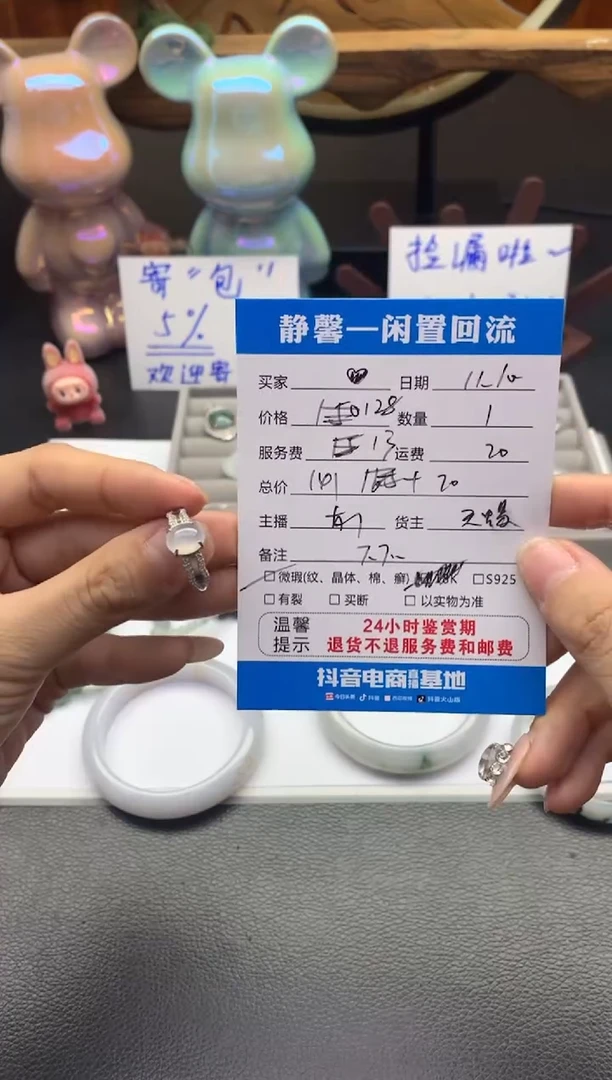 寄“包”
5%
欢迎寄
捡漏啦~
静馨—闲置回流
买家 日期 11.10
价格 128 数量 1
服务费 13 运费 20
总价 141 + 20
主播 货主
备注
□微瑕(纹、晶体、棉、癣) K □S925
□有裂 □买断 □以实物为准
温馨提示
24小时鉴赏期
退货不退服务费和邮费
抖音电商直播基地
今日头条 抖音 西瓜视频 抖音火山版